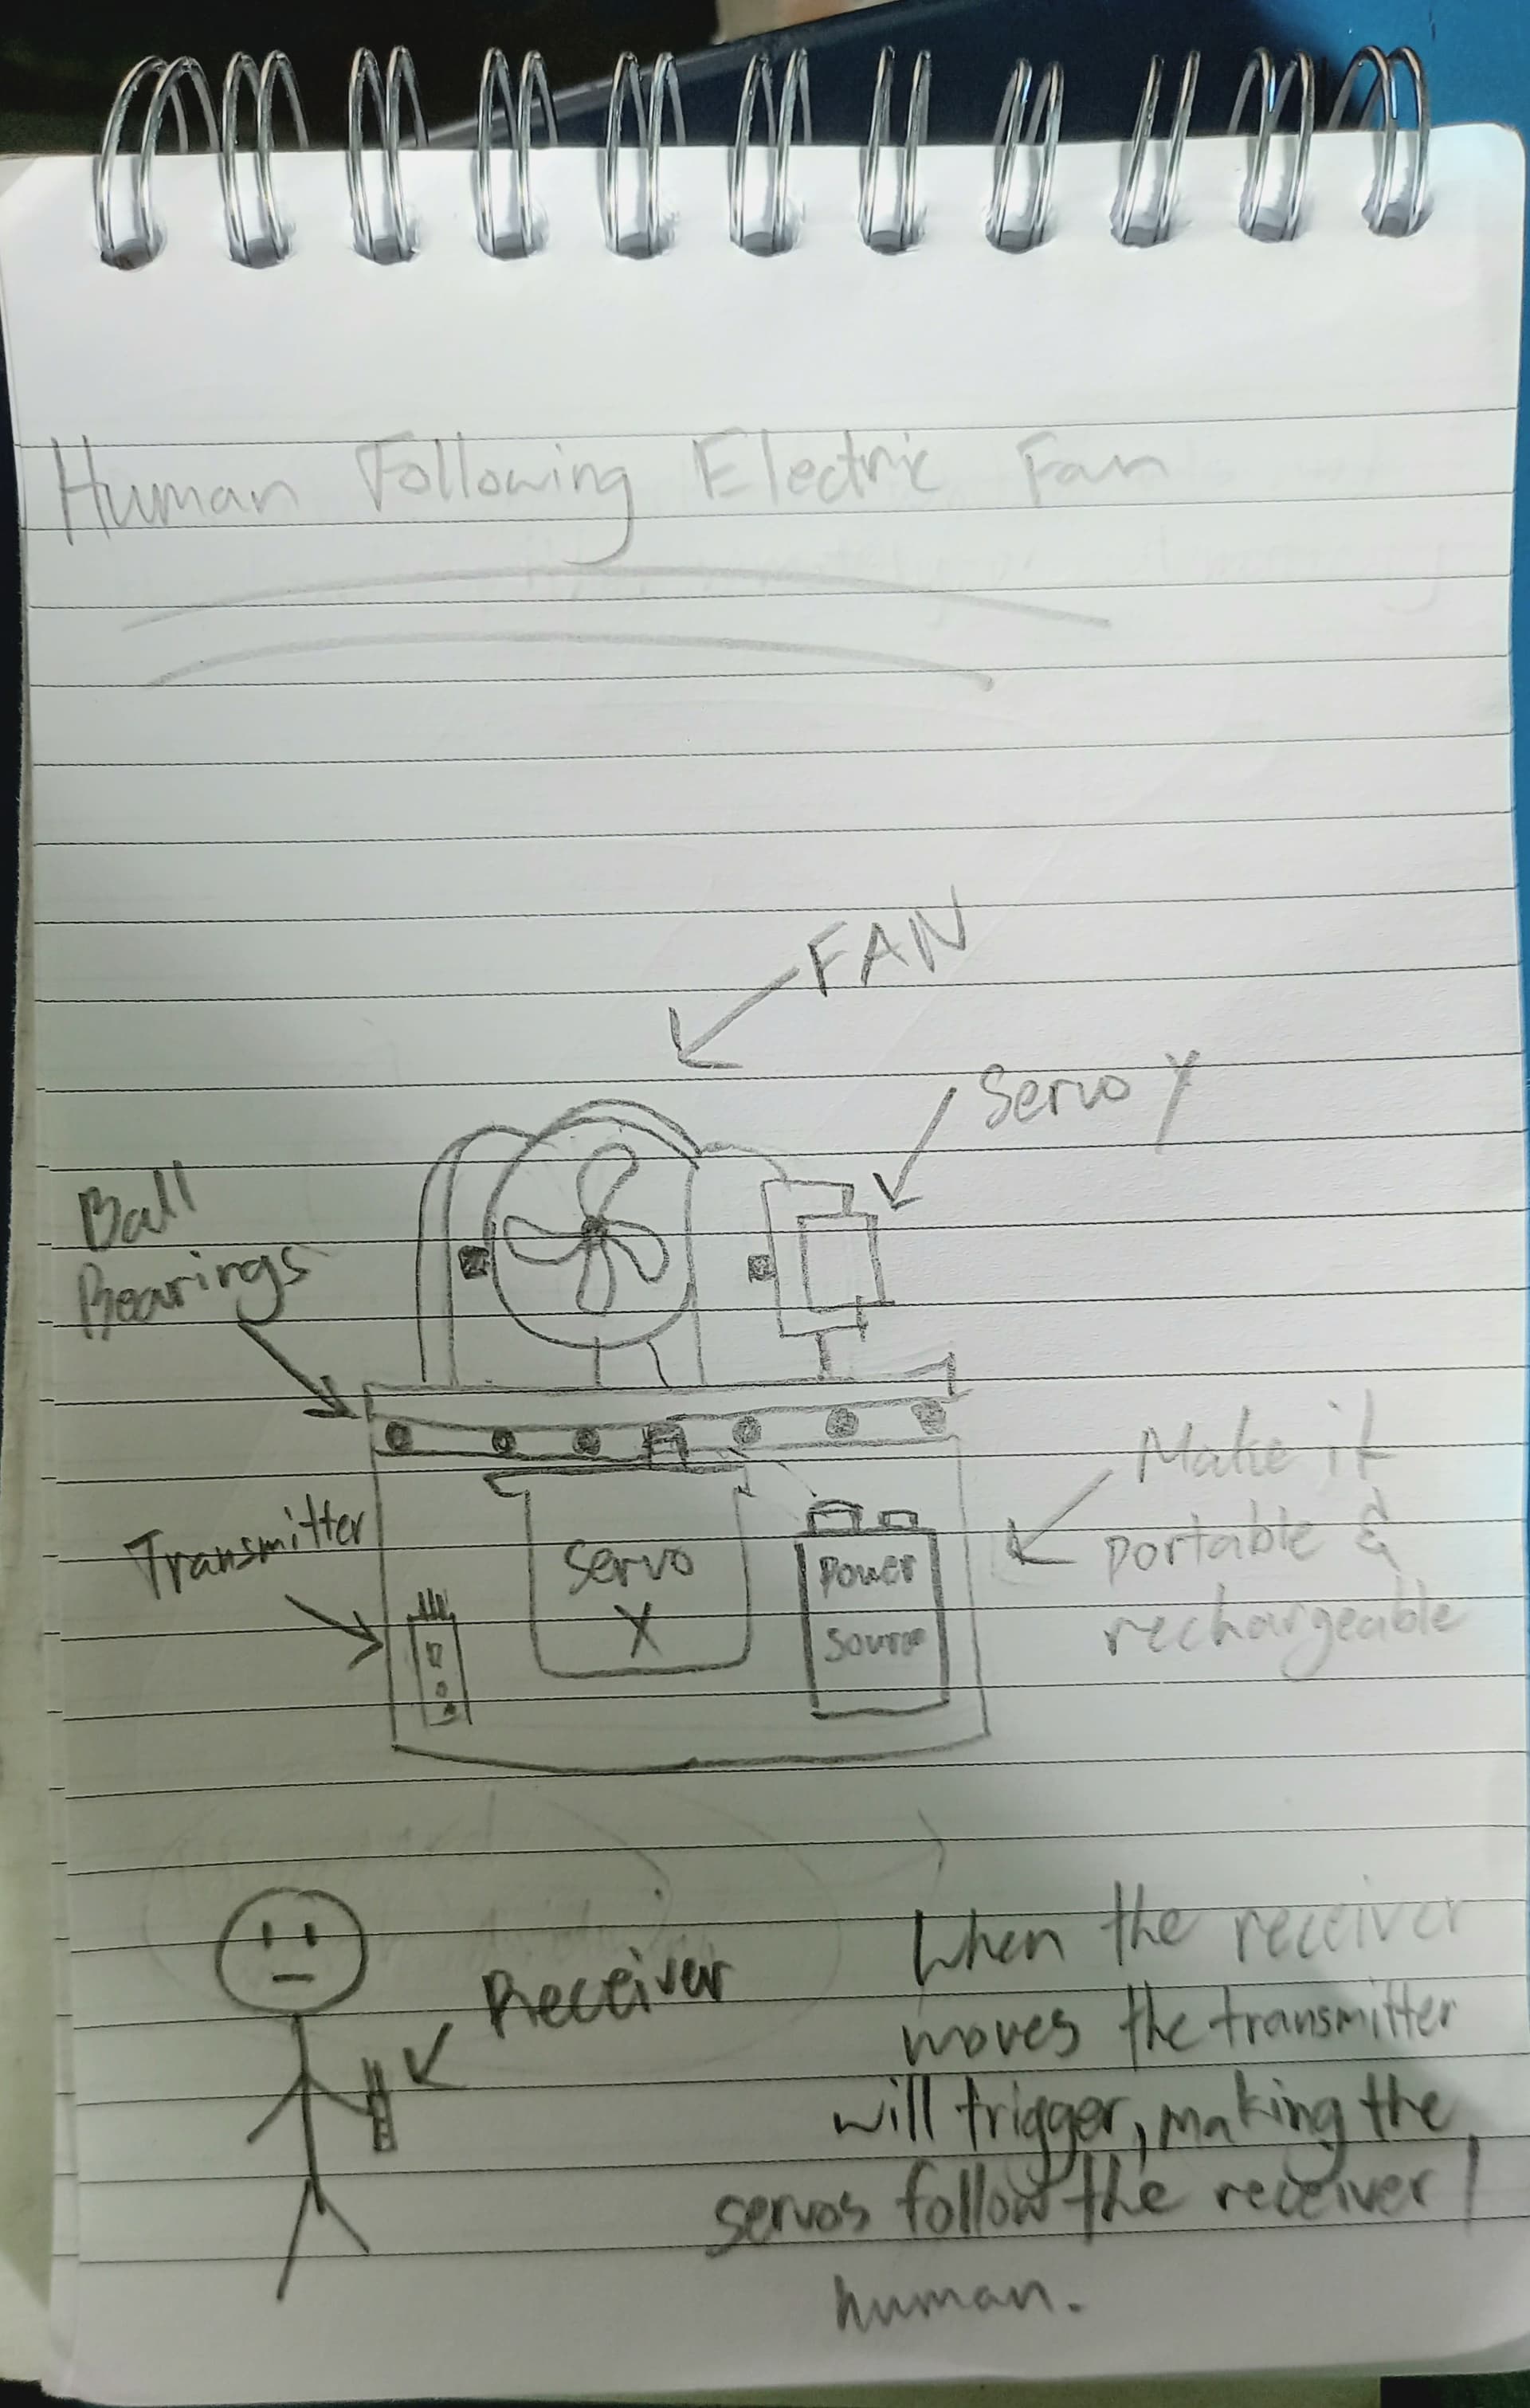 Human Following Electric Fan
FAN
Servo Y
Ball
Bearings
Make it
portable &
rechargeable
Transmitter
Servo
X
Power
Source
Receiver
When the receiver
moves the transmitter
will trigger, making the
servos follow the receiver /
human.